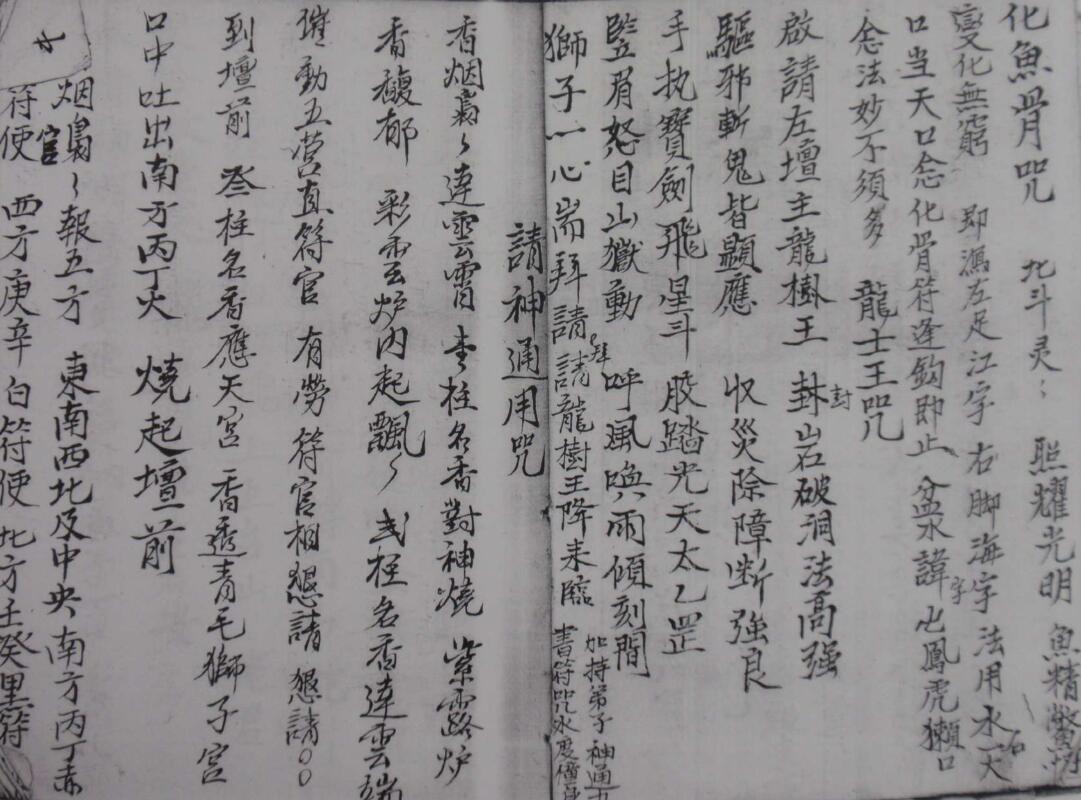 化魚骨咒 北斗灵〻 照耀光明 魚精鱉
變化無窮 即瀉左足江字 右脚海字 法用水一
口当天口念化骨符逢鈎即止 盆水諱 鳳虎獺口
念法妙不須多 龍士王咒
啟請左壇主龍樹王 封岩破洞法高強
驅邪斬鬼皆顯應 収災除障断強良
手执寶劍飛星斗 股踏光天太乙罡
竪眉怒目山獄動 呼風喚雨傾刻間
獅子一心耑拜請 拜請龍樹王降来臨 加持弟子神通 書符咒水度僮
請神通用咒
香烟裊〻連雲霄 壹柱名香對神燒 紫霞炉
香馥郁 彩雲炉内起飄〻 弍柱名香連雲端
摧動五营直符官 有勞符官相懇請 懇請〇〇
到壇前 叁柱名香應天宮 香透青毛獅子宮
口中吐出南方丙丁火 燒起壇前
烟裊〻報五方 東南西北及中央 南方丙丁赤
符官便 西方庚辛白符便 北方壬癸黑符